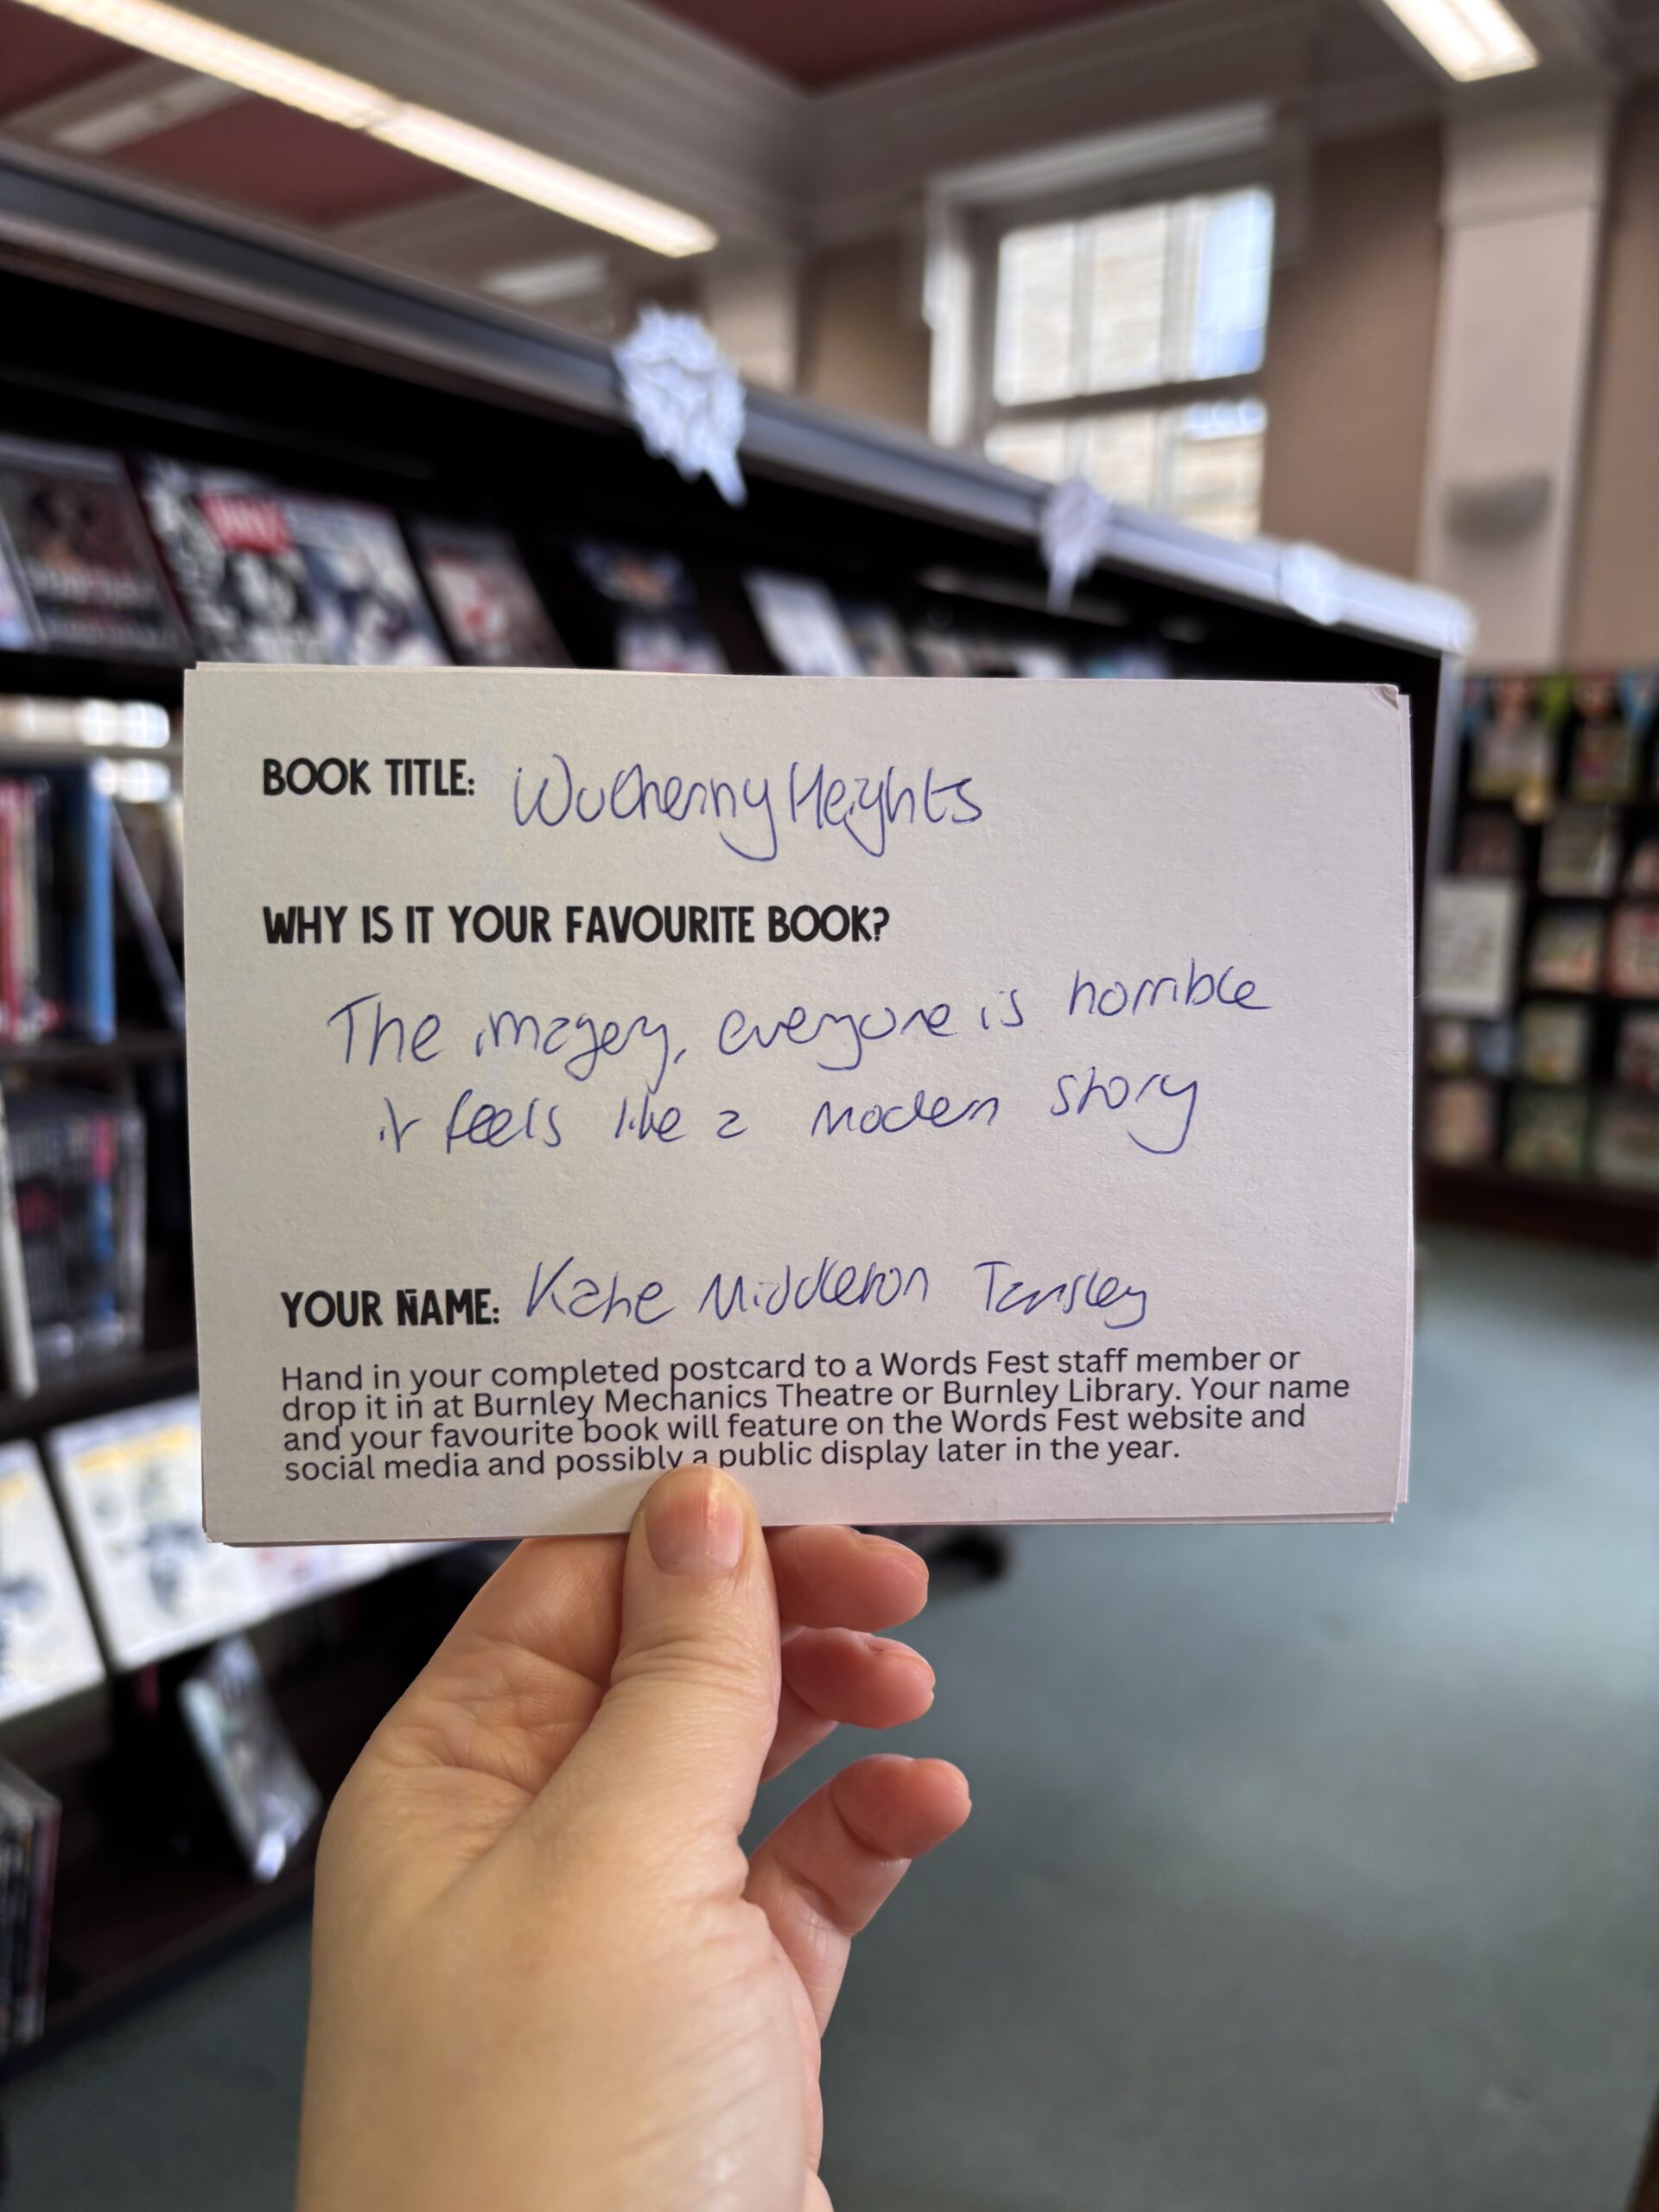 BOOK TITLE: Wuthering Heights
WHY IS IT YOUR FAVOURITE BOOK?
The imagery, everyone is horrible
it feels like a modern story
YOUR NAME: Katie Middleton Tansley
Hand in your completed postcard to a Words Fest staff member or
drop it in at Burnley Mechanics Theatre or Burnley Library. Your name
and your favourite book will feature on the Words Fest website and
social media and possibly a public display later in the year.